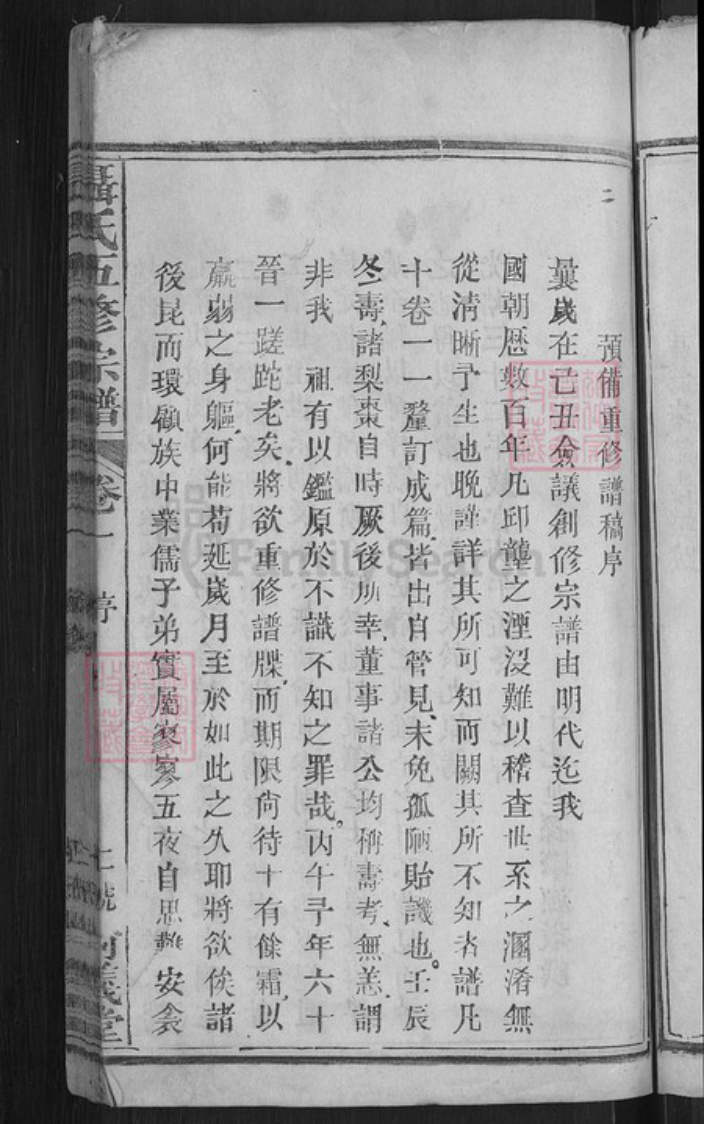 二
預備重修譜稿序
曩歲在己丑僉議創修宗譜由明代迄我
國朝歷數百年凡邱壟之湮沒難以稽查世系之溷淆無
從清晰予生也晚謹詳其所可知而闕其所不知者譜凡
十卷一一釐訂成篇皆出自管見未免孤陋貽譏也壬辰
冬壽諸梨棗自時厥後所幸董事諸公均稱壽考無恙謂
非我 祖有以鑑原於不識不知之罪哉丙午予年六十
晉一蹉跎老矣將欲重修譜牒而期限尚待十有餘霜以
羸弱之身軀何能苟延歲月至於如此之久耶將欲俟諸
後昆而環顧族中業儒子弟實屬寥寥五夜自思難安衾
聶氏五修宗譜
卷一
序
FamilySearch